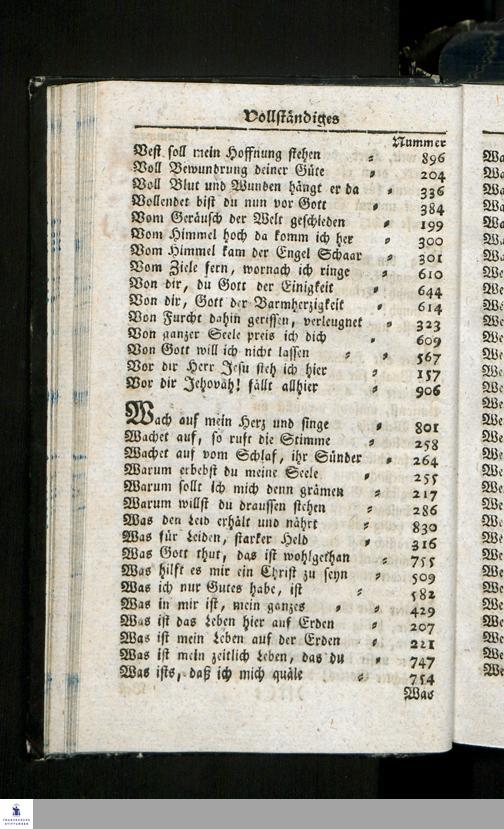 Vollständiges
Nummer
Vest soll mein Hoffnung stehen 896
Voll Bewundrung deiner Güte 204
Voll Blut und Wunden hängt er da 336
Vollendet bist du nun vor Gott 384
Vom Geräusch der Welt geschieden 199
Vom Himmel hoch da komm ich her 300
Vom Himmel kam der Engel Schaar 301
Vom Ziele fern, wornach ich ringe 610
Von dir, du Gott der Einigkeit 644
Von dir, Gott der Barmherzigkeit 614
Von Furcht dahin gerissen, verleugnet 323
Von ganzer Seele preis ich dich 609
Von Gott will ich nicht lassen 567
Vor dir Herr Jesu steh ich hier 157
Vor dir Jehoväh! fällt allhier 906
Wach auf mein Herz und singe 801
Wachet auf, so ruft die Stimme 258
Wachet auf vom Schlaf, ihr Sünder 264
Warum erbebst du meine Seele 255
Warum sollt ich mich denn grämen 217
Warum willst du draussen stehen 286
Was den Leib erhält und nährt 830
Was für Leiden, starker Held 316
Was Gott thut, das ist wohlgethan 755
Was hilft es mir ein Christ zu seyn 509
Was ich nur Gutes habe, ist 582
Was in mir ist, mein ganzes 429
Was ist das Leben hier auf Erden 207
Was ist mein Leben auf der Erden 221
Was ist mein zeitlich Leben, das du 747
Was ists, daß ich mich quäle 754
Was